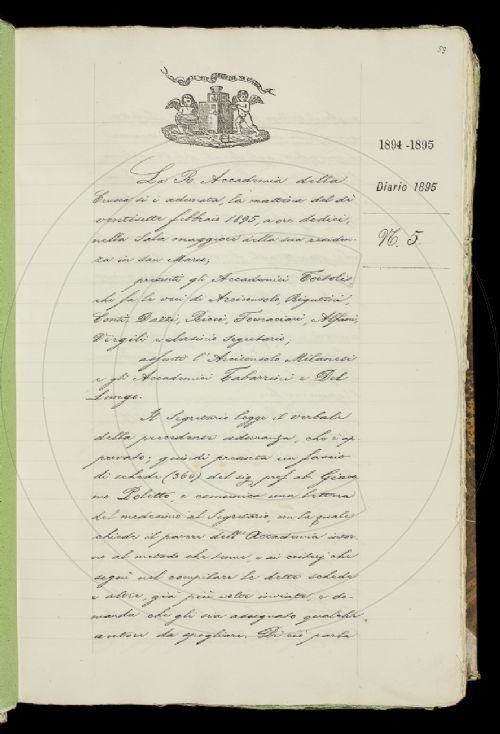 59
1894-1895
Diario 1895
N. 5
La R. Accademia della
Crusca si è adunata, la mattina del dì
ventisette febbraio 1895, a ore dodici,
nella Sala maggiore della sua residen-
za in San Marco;
presenti gli Accademici Tortoli,
che fa le veci di Arciconsolo, Rigutini,
Conti, Dazzi, Ricci, Tornaciari, Alfani,
Virgili e Segretario;
assenti l'Arciconsolo Milanesi
e gli Accademici Tabarrini e Del
Lungo.
Il Segretario legge il verbale
della precedente adunanza, che è ap-
provato; quindi presenta un fascio
di schede (360) del sig. prof. ab. Giaco-
mo Poletto, e comunica una lettera
del medesimo al Segretario, con la quale
chiede il parere dell'Accademia intor-
no al metodo che tenne, e ai criterj che
seguì nel compilare le dette schede
e altre, già più volte inviate, e do-
manda che gli sia assegnato qualche
autore da spogliare. Di ciò parla